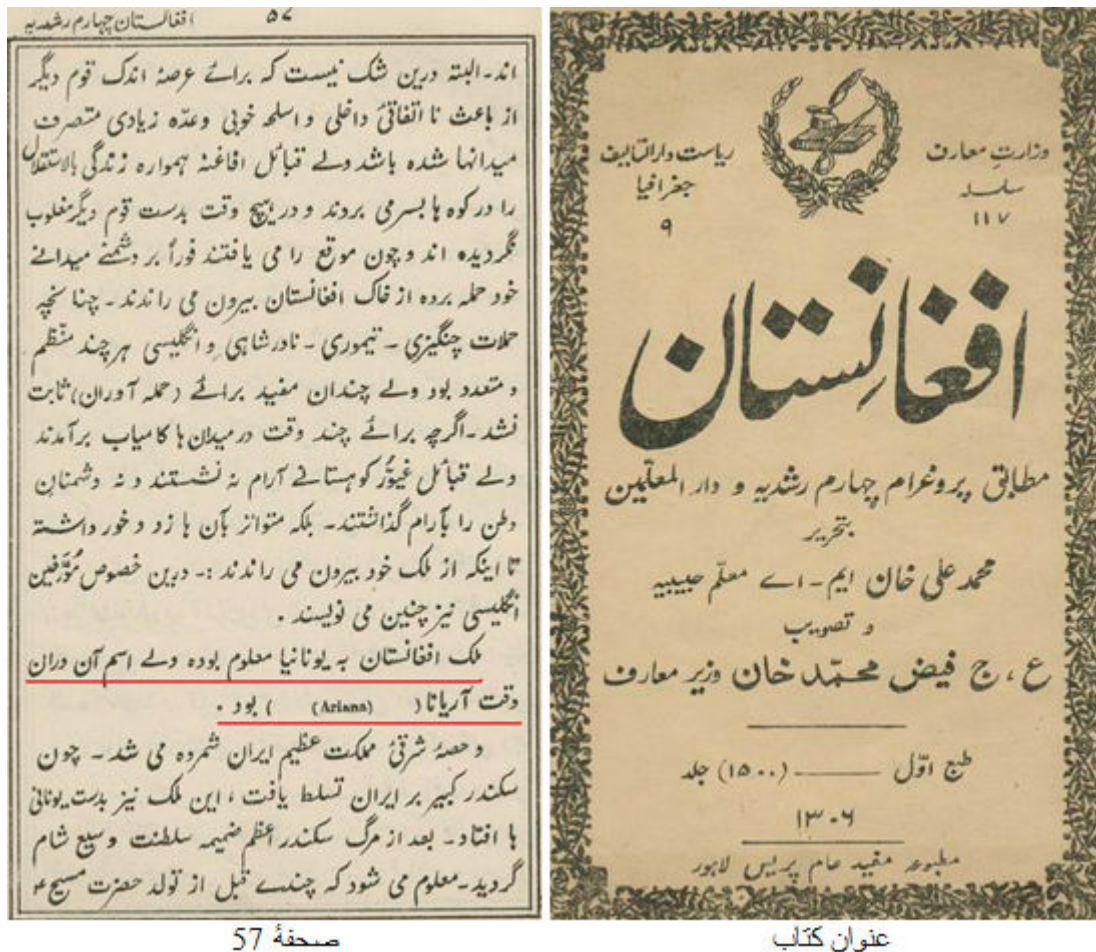 افغانستان چهارم رشدیه
۵۷
اند۔ البته درین شک نیست که برائے عرصۂ اندک قوم دیگر
از باعث نا اتفاقیٔ داخلی و اسلحه خوبی وعدّه زیادی متصرف
میدانها شده باشد ولے قبائل افاغنه همواره زندگی بالاستقلال
را در کوه ها بسر می بردند و در هیچ وقت بدست قوم دیگر مغلوب
نگردیده اند و چون موقع را می یافتند فوراً بر دشمنے میدانے
خود حمله برده از خاک افغانستان بیرون می راندند ۔ چنانچه
حملات چنگیزی ۔ تیموری ۔ نادرشاهی و انگلیسی هر چند منظّم
و متعدد بود ولے چندان مفید برائے (حمله آوران) ثابت
نشد۔ اگرچه برائے چند وقت در میدان ها کامیاب برآمدند
ولے قبائل غیوُّر کوهستانے آرام نه نشستند و نه دشمنان
وطن را بآرام گذاشتند ۔ بلکه متواتر بآن ها زد و خورد داشته
تا اینکه از ملک خود بیرون می راندند :۔ درین خصوص مُؤرّفین
انگلیسی نیز چنین می نویسند ۰
ملک افغانستان به یونانیا معلوم بوده ولے اسم آن دران
وقت آریانا ( (Ariana) ) بود ۰
و حصۂ شرقیٔ مملکت عظیم ایران شمرده می شد ۔ چون
سکندر کبیر بر ایران تسلط یافت ، این ملک نیز بدست یونانی
ها افتاد ۔ بعد از مرگ سکندر اعظم ضمیمه سلطنت وسیع شام
گردید ۔ معلوم می شود که چندے قبل از تولد حضرت مسیح ؑ
صفحۀ 57
وزارتِ معارف
سلسله
۱۱۷
ریاست دارالتالیف
جغرافیا
۹
افغانِستان
مطابق پروغرام چهارم رشدیه و دار المعلّمین
بتحریر
محمد علی خان ایم ۔ اے معلّم حبیبیه
و تصویب
ع ، ج فیض محمّد خان وزیر معارف
طبع اوّل ——— (۱۵۰۰) جلد
۱۳۰۶
مطبوعه مفید عام پریس لاهور
عنوان کتاب